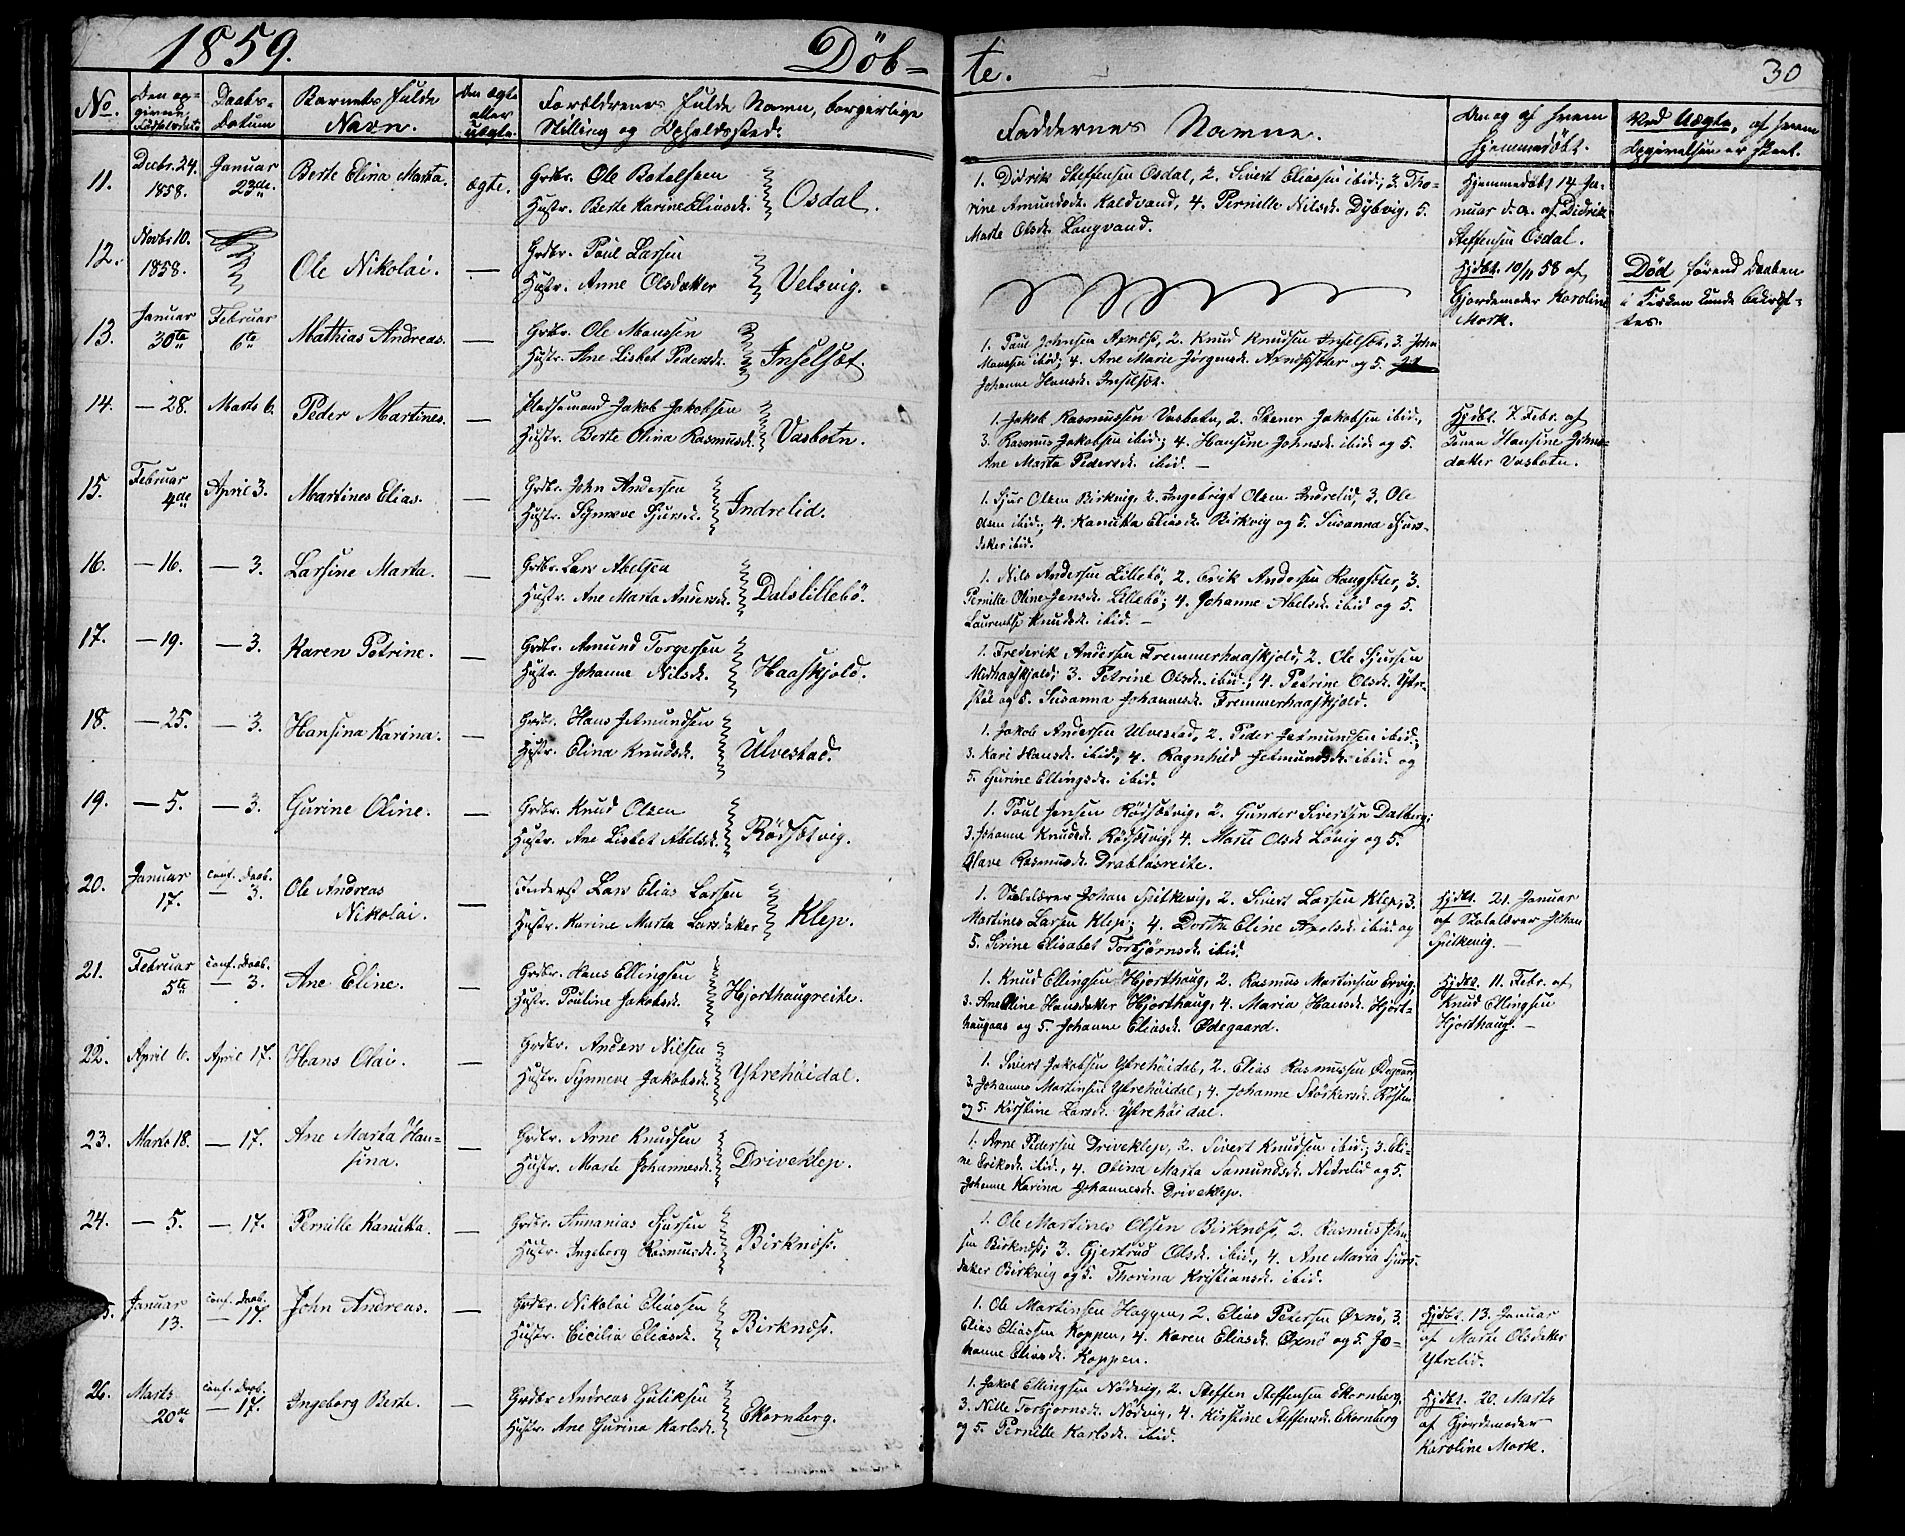 1859.
Döb=
te.
30
No.
Den op=
givne
Födselsdato
Daabs=
Datum
Barnets fulde
Navn.
Om ægte
eller
uægte.
Forældrenes fulde Navn, borgerlige
Stilling og Opholdssted.
Faddernes Navne.
Om og af hvem
hjemmedöbt.
Ved Uægte, af hvem
Opgivelsen er skeet.
11.
Decbr. 24.
1858.
Januar
23de.
Berte Elina Marta.
ægte.
Grdbr. Ole Botelsen
Hustr. Berte Karine Eliasdr.
Osdal.
1. Didrik Steffensen Osdal, 2. Sivert Eliassen ibid; 3. Tho=
rine Amundsdr. Kaldvand, 4. Pernille Nilsdr. Dybvig, 5.
Marte Olsdr. Langvand.
Hjemmedöbt 14 Ja=
nuar d. a. af Didrik
Steffensen Osdal.
12.
Novbr. 10.
1858.
Ole Nikolai.
—
Grdbr. Poul Larsen
Hustr. Anne Olsdatter
Velsvig.
Hjdbt. 10/11 58 af
Gjordemoder Karoline
Mork.
Död förend Daaben
i Kirken kunde bekræf=
tes.
13.
Januar
30te
Februar
6te
Mathias Andreas.
—
Grdbr. Ole Monssen
Hustr. Ane Lisbet Pedersdr.
Inselsæt.
1. Poul Johnsen Aarnæs, 2. Knud Knudsen Inselsæt, 3. John
Monssen ibid; 4. Ane Marie Jörgensdr. Aarnæssæter og 5.
Johanne Hansdr. Inselsæt.
14.
— 28.
Marts 6.
Peder Martines.
—
Pladsemand Jakob Jakobsen
Hustr. Berte Olina Rasmusdr.
Vasbotn.
1. Jakob Rasmussen Vasbotn, 2. Stener Jakobsen ibid,
3. Rasmus Jakobsen ibid; 4. Hansine Johnsdr. ibid og 5.
Ane Marta Pedersdr. ibid. —
Hjdbt. 7. Febr. af
Konen Hansine Johns=
datter Vasbotn.
15.
Februar
4de
April 3.
Martines Elias.
—
Grdbr. John Andersen
Hustr. Synneve Sjursdr.
Indrelid.
1. Sjur Olsen Birkvig, 2. Ingebrigt Olsen Indrelid, 3. Ole
Olsen ibid; 4. Kanutta Eliasdr. Birkvig og 5. Susanna Sjurs=
datter ibid.
16.
— 16.
— 3.
Larsine Marta.
—
Grdbr. Lars Abelsen
Hustr. Ane Marta Andersdr.
Dalslillebö.
1. Nils Andersen Lillebö, 2. Erik Andersen Haugsæter, 3.
Pernille Oline Jensdr. Lillebö; 4. Johanne Abelsdr. ibid og 5.
Laurentse Knudsdr. ibid. —
17.
— 19.
— 3.
Karen Petrine.
—
Grdbr. Amund Torgersen
Hustr. Johanne Nilsdr.
Haaskjold.
1. Frederik Andersen Fremmerhaaskjold, 2. Ole Sjursen
Medhaaskjold; 3. Petrine Olsdr. ibid; 4. Petrine Olsdr. Ytre=
stöe og 5. Susanna Johannesdr. Fremmerhaaskjold.
18.
— 25.
— 3.
Hansina Karina.
—
Grdbr. Hans Jetmundsen
Hustr. Elina Knudsdr.
Ulvestad.
1. Jakob Andersen Ulvestad, 2. Peder Jetmundsen ibid;
3. Kari Hansdr. ibid, 4. Ragnhild Jetmundsdr. ibid og
5. Gurine Ellingsdr. ibid.
19.
— 5.
— 3.
Gurine Oline.
—
Grdbr. Knud Olsen
Hustr. Ane Lisbet Abelsdr.
Rödsætvig.
1. Poul Jensen Rödsætvig, 2. Gunder Sivertsen Dalberg;
3. Johanne Knudsdr. Rödsætvig, 4. Marte Olsdr. Lövig og 5.
Olave Rasmusdr. Drablösreite.
20.
Januar
17.
conf. Daab.
— 3.
Ole Andreas
Nikolai.
—
Inderst Lars Elias Larsen
Hustr. Karine Marta Larsdatter
Klep.
1. Skolelærer Johan Spilkevig, 2. Sivert Larsen Klep, 3.
Martines Larsen Klep; 4. Dorthe Eline Axelsdr. ibid og
5. Sirine Elisabet Torbjörnsdr. ibid.
Hjdbt. 21. Januar
af Skolelærer Johan
Spilkevig. —
21.
Februar
5te
conf. Daab.
— 3.
Ane Eline.
—
Grdbr. Hans Ellingsen
Hustr. Pouline Jakobsdr.
Hjorthaugreite.
1. Knud Ellingsen Hjorthaug, 2. Rasmus Martinsen Ervig,
3. Ane Eline Hansdatter Hjorthaug, 4. Maria Hansdr. Hjort=
haugaas og 5. Johanne Eliasdr. Ødegaard.
Hjdbt. 11. Febr. af
Knud Ellingsen
Hjorthaug. —
22.
April 6.
April 17.
Hans Olai.
—
Grdbr. Anders Nilsen
Hustr. Synneve Jakobsdr.
Ytrehöidal.
1. Sivert Jakobsen Ytrehöidal, 2. Elias Rasmussen Ødegaard
3. Johannes Martinsen Ytrehöidal; 4. Johanne Störkersdr. Kösten
og 5. Kirstine Larsdr. Ytrehöidal.
23.
Marts 18.
— 17.
Ane Marta Han=
sina.
—
Grdbr. Arne Knudsen
Hustr. Marte Johannesdr.
Driveklep.
1. Arne Pedersen Driveklep, 2. Sivert Knudsen ibid; 3. Eli=
ne Eriksdr. ibid, 4. Olina Marta Samundsdr. Nedrelid og 5.
Johanne Karina Johannesdr. Driveklep.
24.
— 5.
— 17.
Pernille Kanutta.
—
Grdbr. Annanias Sjursen
Hustr. Ingeborg Rasmusdr.
Birknæs.
1. Ole Martines Olsen Birknæs, 2. Rasmus John=
sen Birknæs; 3. Gjertrud Olsdr. ibid, 4. Ane Maria Sjurs=
datter Birkvig og 5. Thorina Kristiansdr. ibid.
25.
Januar
13.
conf. Daab.
— 17.
John Andreas.
—
Grdbr. Nikolai Eliassen
Hustr. Cicilia Eliasdr.
Birknæs.
1. Ole Martinsen Haggen, 2. Elias Petersen Oxnö, 3.
Elias Eliassen Koppen, 4. Karen Eliasdr. Oxnö og 5. Jo=
hanne Eliasdr. Koppen.
Hjdbt. 13. Januar
af Marte Olsdatter
Ytrelid.
26.
Marts
20de
conf. Daab.
— 17.
Ingeborg Berte.
—
Grdbr Andreas Guliksen
Hustr. Ane Gurina Karlsdr.
Ekornberg.
1. Jakob Ellingsen Nödvig, 2. Steffen Steffensen Ekornberg.
3. Nille Torbjornsdr. Nödvig, 4. Kirstine Steffensdr. Ekornberg
og 5. Pernille Karlsdr. ibid.
Hjdbt. 20. Marts
af Gjordemoder
Karoline Mork.